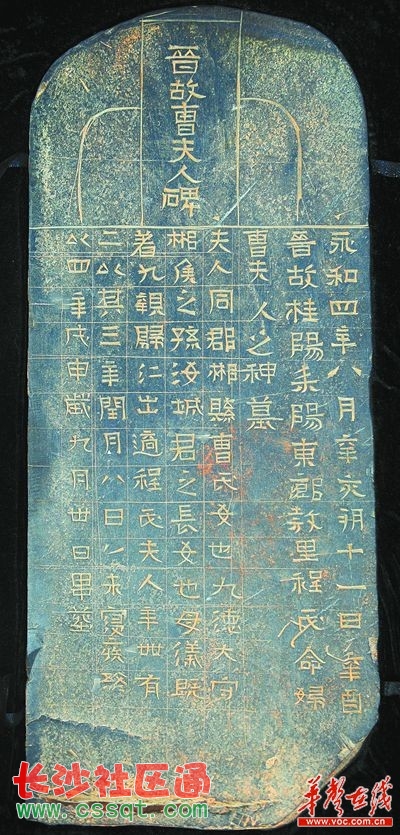 晉故曹夫人碑
永和四年八月辛亥朔十一日辛酉
晉故桂陽耒陽東鄉敦里程氏命婦
曹夫人之神墓
夫人同郡郴縣曹氏女也九德大守
相侯之孫汝城君之長女也母儀既
著九親歸仁出適程氏夫人年卅有
二以其三年閏月八日乙未寢疾終
以四年戊申歲九月卅日畢葬
长沙社区通
www.cssqt.com
华声在线
www.voc.com.cn